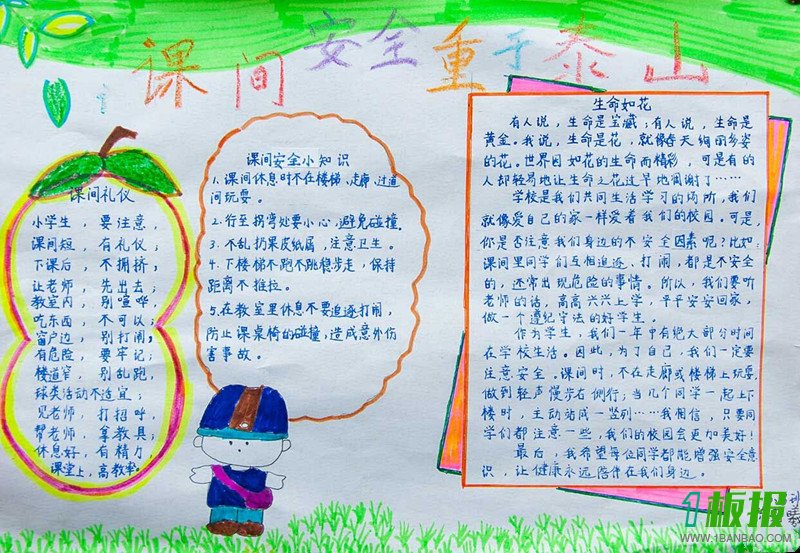 课间安全重于泰山
课间礼仪
小学生，要注意，
课间短，有礼仪；
下课后，不拥挤；
让老师，先出去；
教室内，别喧哗，
吃东西，不可以；
窗户边，别打闹，
有危险，要牢记；
楼道窄，别乱跑，
球类活动不适宜；
见老师，打招呼，
帮老师，拿教具；
休息好，有精力，
课堂上，高效率。
课间安全小知识
1、课间休息时不在楼梯、走廊、过道
间玩耍。
2、行至拐弯处要小心，避免碰撞。
3、不乱扔果皮纸屑，注意卫生。
4、下楼梯不跑不跳稳步走，保持
距离不推拉。
5、在教室里休息不要追逐打闹，
防止课桌椅的碰撞，造成意外伤
害事故。
生命如花
有人说，生命是宝藏；有人说，生命是
黄金。我说，生命是花，就像春天绚丽多姿
的花。世界因如花的生命而精彩，可是有的
人却轻易地让生命之花过早地凋谢了……
学校是我们共同生活学习的场所，我们
就像爱自己的家一样爱着我们的校园。可是
你是否注意我们身边的不安全因素呢？比如：
课间里同学们互相追逐、打闹，都是不安全
的，还常出现危险的事情。所以，我们要听
老师的话，高高兴兴上学，平平安安回家，
做一个遵纪守法的好学生。
作为学生，我们一年中有绝大部分时间
在学校生活。因此，为了自己，我们一定要
注意安全。课间时，不在走廊或楼梯上玩耍，
做到轻声慢步右侧行；当几个同学一起上下
楼时，主动站成一竖列……我相信，只要同
学们都注意一些，我们的校园会更加美好！
最后，我希望每位同学都能增强安全意
识，让健康永远陪伴在我们身边。
1板报
WWW.1BANBAO.COM